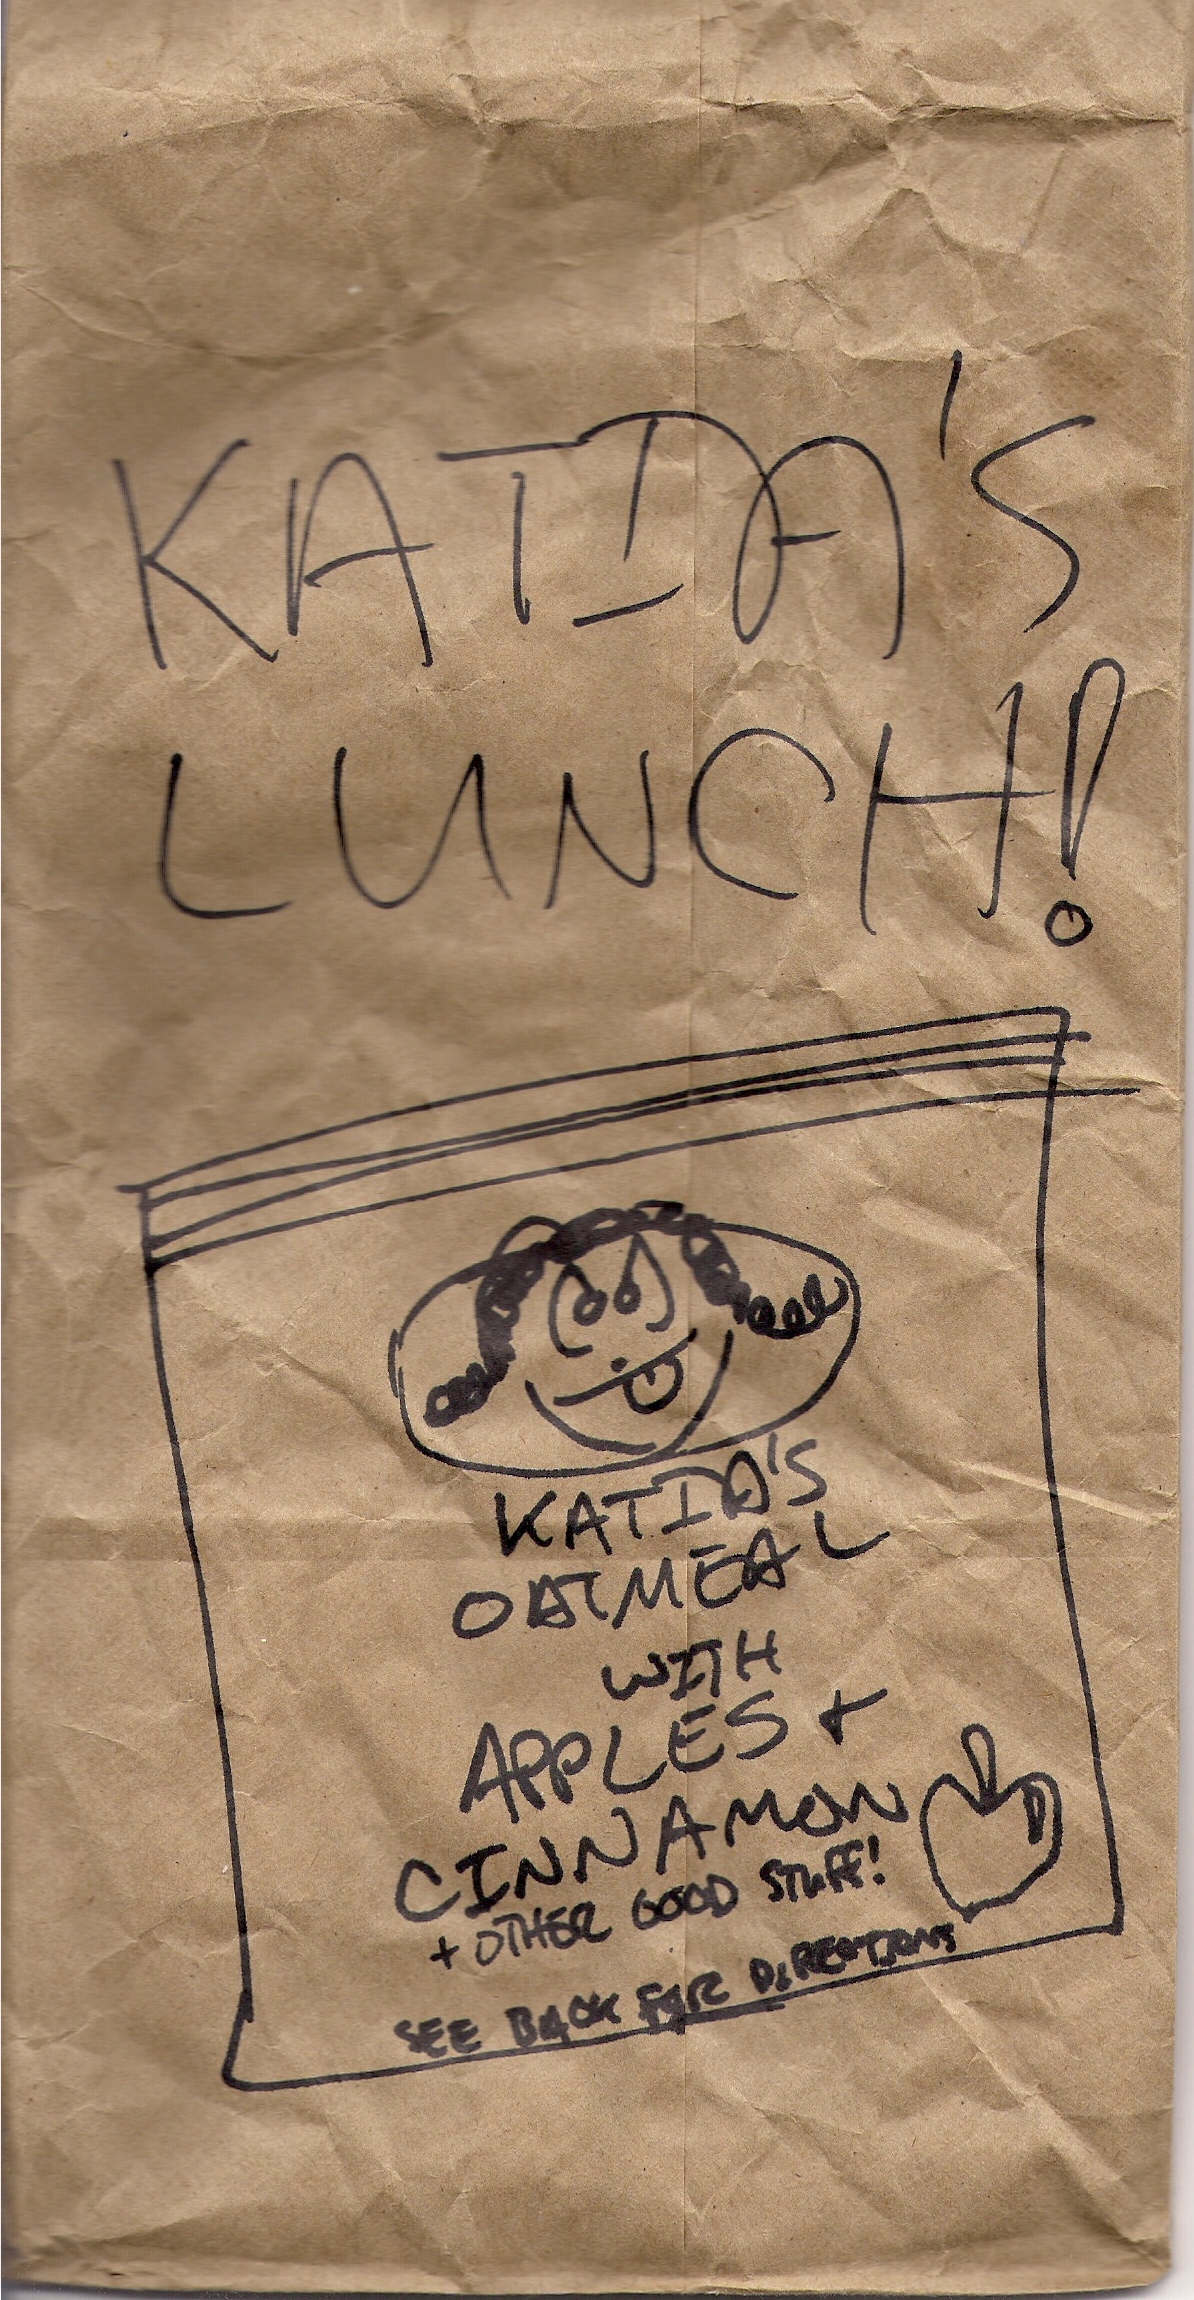 KATIA'S
LUNCH!
KATIA'S
OATMEAL
WITH
APPLES +
CINNAMON
+ OTHER GOOD STUFF!
SEE BACK FOR DIRECTIONS